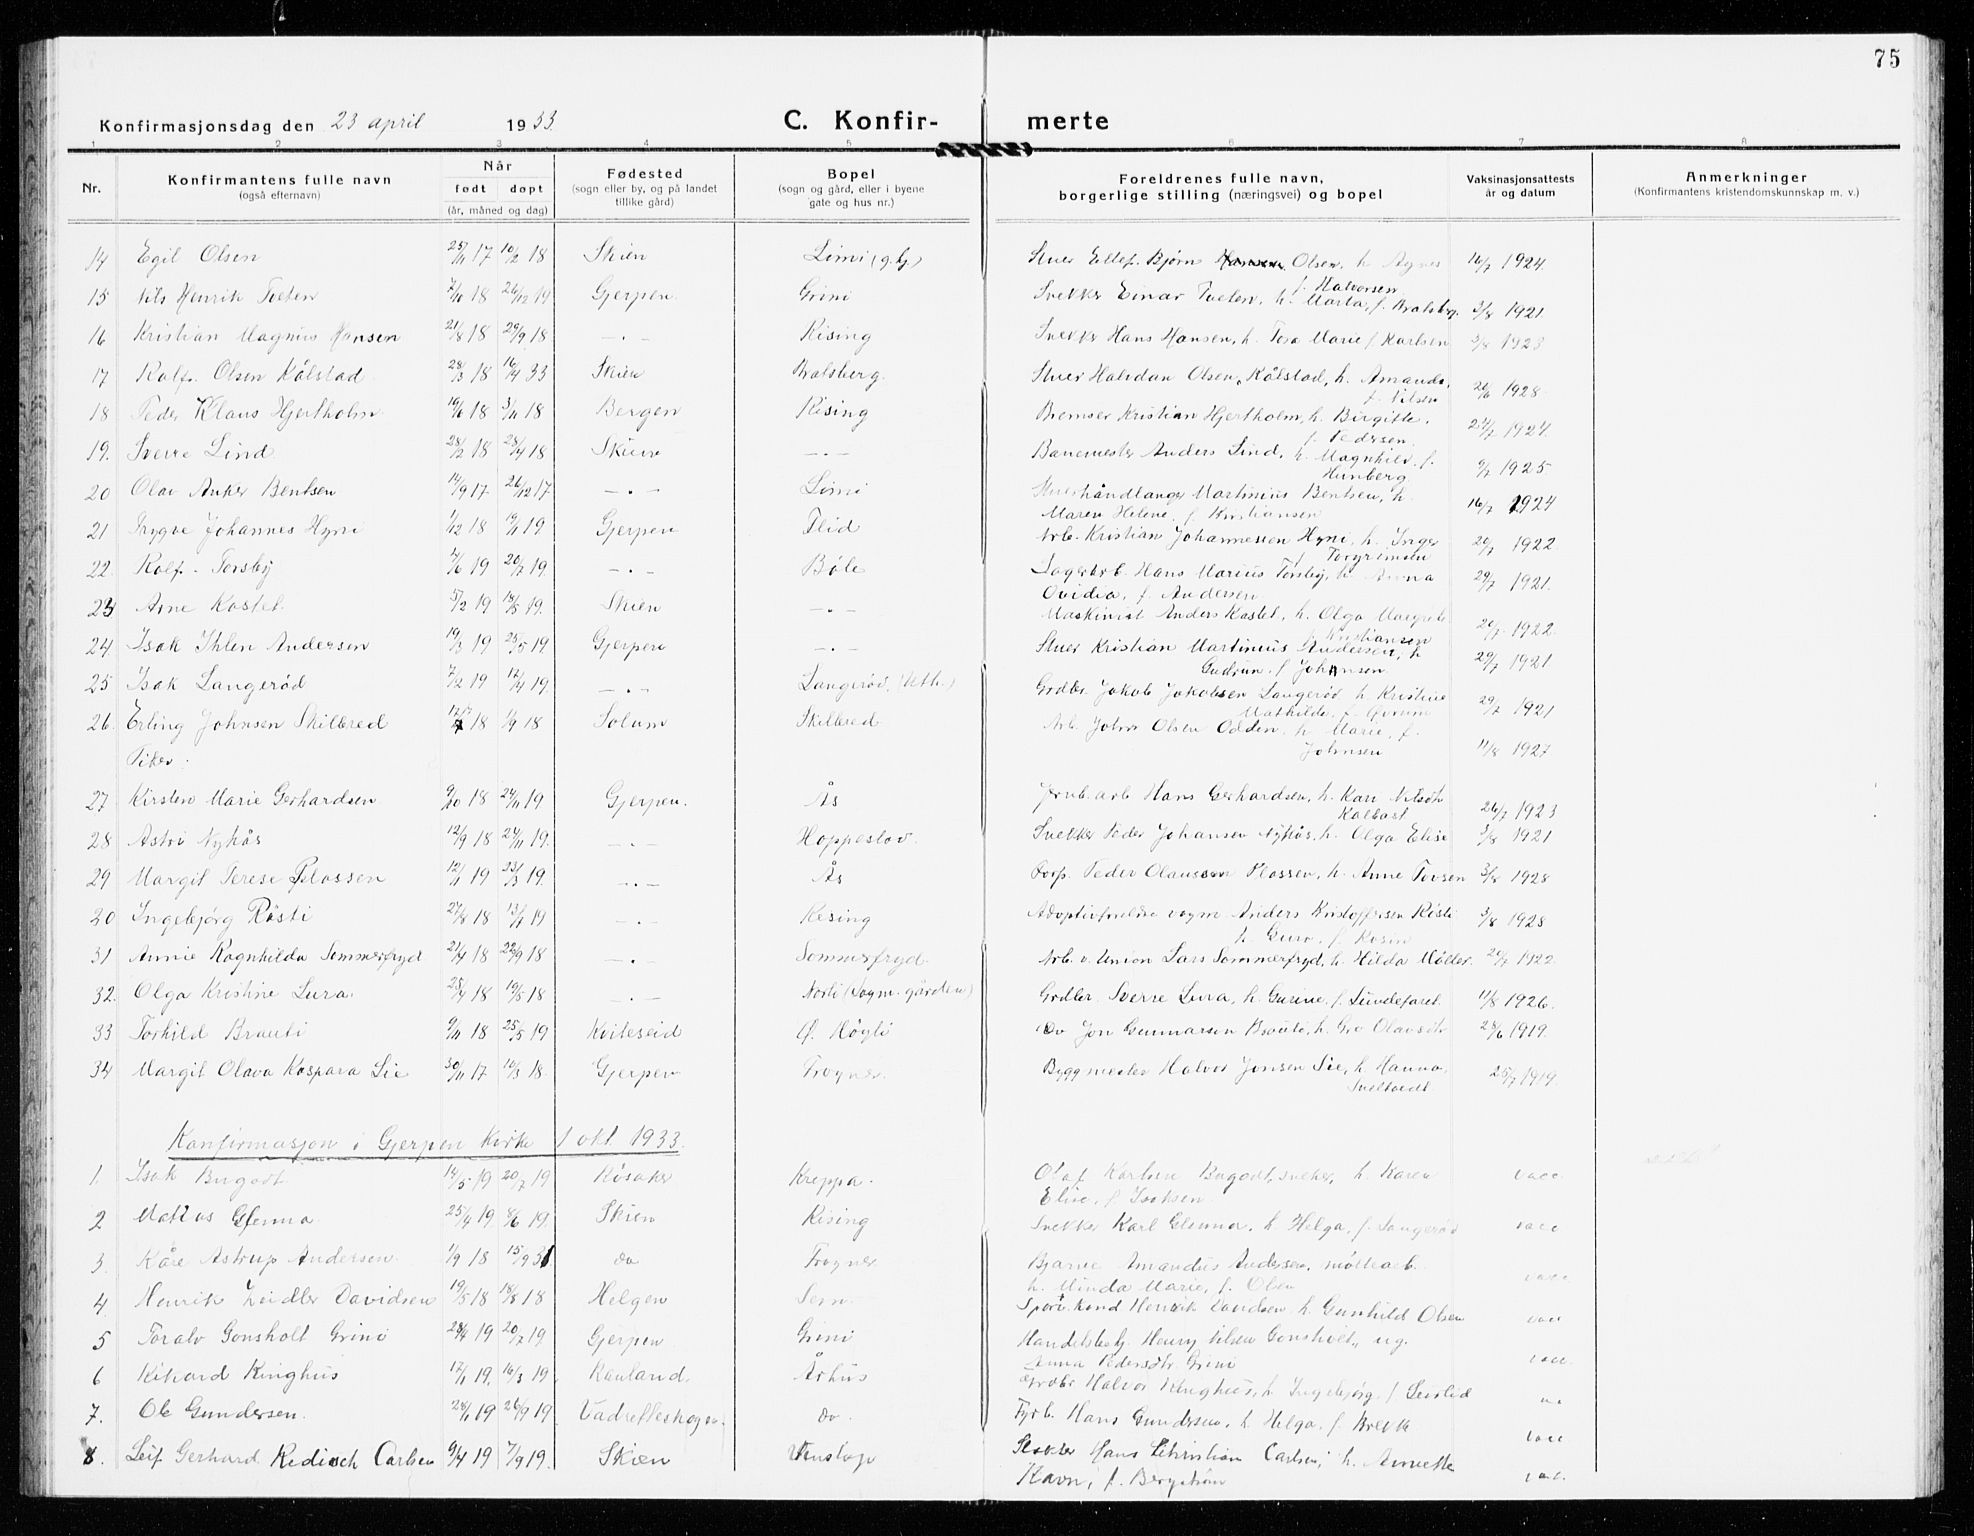 75
Konfirmasjonsdag den 23 april 1933
C. Konfir- merte
1 2 3 4 5 6 7 8
Nr. Konfirmantens fulle navn (også efternavn) Når født døpt (år, måned og dag) Fødested (sogn eller by, og på landet tillike gård) Bopel (sogn og gård, eller i byene gate og hus nr.) Foreldrenes fulle navn, borgerlige stilling (næringsvei) og bopel Vaksinasjonsattests år og datum Anmerkninger (Konfirmantens kristendomskunnskap m. v.)
14 Egil Olsen 25/11 17 10/2 18 Skien Limi (g.bj) Stuer Ellef Bjørn Olsen, h. Agnes f. Halvorsen 16/7 1924.
15 Nils Henrik Tveten 7/10 18 26/12 19 Gjerpen Grini Snekker Einar Tveten, h. Marta, f. Bratsberg. 3/8 1921
16 Kristian Magnus Hansen 21/8 18 29/9 18 — . — Rising Snekker Hans Hansen, h. Tora Marie f. Karlsen 3/8 1923
17 Ralf. Olsen Kålstad 28/3 18 16/4 33 Skien Bratsberg. Stuer Halvdan Olsen Kålstad, h. Amanda, f. Nilsen 20/6 1928
18 Peder Klaus Hjertholm 19/6 18 3/11 18 Bergen Rising Bremser Kristian Hjertholm, h. Birgitte, f. Pedersen 24/7 1924.
19. Sverre Lind 28/2 18 28/4 18 Skien — . — Banemester Anders Lind, h. Magnhild f. Hunberg 9/7 1925
20 Olav Anker Bentsen 14/9 17 26/12 17 — . — Limi Stuerhåndlanger Martinius Bentsen, h. Maren Helene, f. Kristiansen 16/7 1924
21 Trygve Johannes Hyni 1/12 18 19/1 19 Gjerpen Flid Arb. Kristian Johannessen Hyni, h. Inger f. Torgrimsen 20/7 1922
22. Ralf. Torsby 4/6 19 20/7 19. — . — Bøle Lagerarb. Hans Marius Torsby, h. Anna Ovidia, f. Andersen 29/7 1921.
23 Arne Kastet. 5/2 19 18/5 19. Skien — . — Maskinist Anders Kastet, h. Olga Margrete f. Kristiansen 20/7 1922.
24 Isak Ihlen Andersen 19/3 19 25/5 19. Gjerpen — . — Stuer Kristian Martinius Andersen, h Gudrun f. Johansen 29/7 1921
25 Isak Langerød 7/2 19 12/4 19. — . — Langerød, (Uth.) Grdbr. Jakob Jakobsen Langerød h Kristine Mathilde, f. 29/7 1921
26. Erling Johnsen Skilbred 18 1/9 18 Solum Skilbred Arb. John Olsen Odden h Marie, f. Johnsen 11/8 1927
Piker.
27 Kirsten Marie Gerhardsen 9/10 18 24/11 19. Gjerpen. Ås Jernb.arb Hans Gerhardsen, h. Kari Nilsdtr 26/7 1923
28 Astri Nykås 12/9 18 24/11 19. — . — Hoppestad. Snekker Peder Johansen Nykås, h. Olga Elise 3/8 1921
29 Margit Terese Plassen 12/11 19 23/3 19. — . — Ås Forp. Peder Olaussen Plassen, h. Anne Tovsen 3/8 1928
20 Ingebjørg Rösti 27/8 18 13/4 19 — . — Rising Adoptivforeldre vogm. Anders Kristoffersen Rösti h. Guro, f. Rosin 3/8 1928
31 Annie Ragnhilda Sommerfryd 21/4 18 22/9 18 — . — Sommerfryd. Arb. v. Union Lars Sommerfryd, h. Hilda Møller. 20/7 1922
32. Olga Kristine Lura 28/4 18 19/5 18 — . — Nordi (Sogn. gården) Grdbr. Sverre Lura, h. Gurine, f. Lundefaret 11/8 1926.
33 Torhild Brauti 9/11 18 25/5 19 Kviteseid Ø. Høgli do Jon Gunnarsen Brauti, h. Gro Olavsdtr 28/6 1919.
34 Margit Olava Kaspara Lie 30/11 17 10/3 18. Gjerpen Frogner. Byggmester Halvor Jonsen Lie, h. Hanna, 25/7 1919.
Konfirmasjon i Gjerpen Kirke 1 okt. 1933.
1. Isak Bugodt. 14/5 19 20/7 19 Røsaker Kreppa. Olaf Karlsen Bugodt, sneker, h. Karen Elise, f. Isaksen vacc.
2 Mattias Glenna. 25/4 19 8/6 19. Skien Rising Snekker Karl Glenna, h. Helga, f. Langerød vacc
3. Kåre Astrup Andersen 1/9 18 15/9 31 do Frogner Bjarne Amandus Andersen, møllearb. h. Minda Marie, f. Olsen vacc.
4 Henrik Zeidler Davidsen 19/5 18 18/8 18 Helgen Sem. Sporv.kond Henrik Davidsen h. Gunhild Olsen vacc
5 Toralv Gonsholt Grini 28/4 19 20/7 19 Gjerpen Grini Handelsbetj. Henry Nilsen Gonsholt, ug. Anna Pedersdtr. Grini vacc.
6 Rikard Ringhus 17/1 19. 16/3 19 Rauland. Århus Grdbr Halvor Ringhus, h. Ingebjørg, f. va
7. Ole Gundersen. 28/1 19 26/9 19 do. Fyrb. Hans Gundersen, h. Helga f. Brekk vacc
8. Leif Gerhard Redisch Carlsen 9/4 19 7/9 19. Skien Venstøp Slakter Hans Christian Carlsen, h. Annette Karin, f. Bergstrøm vac.